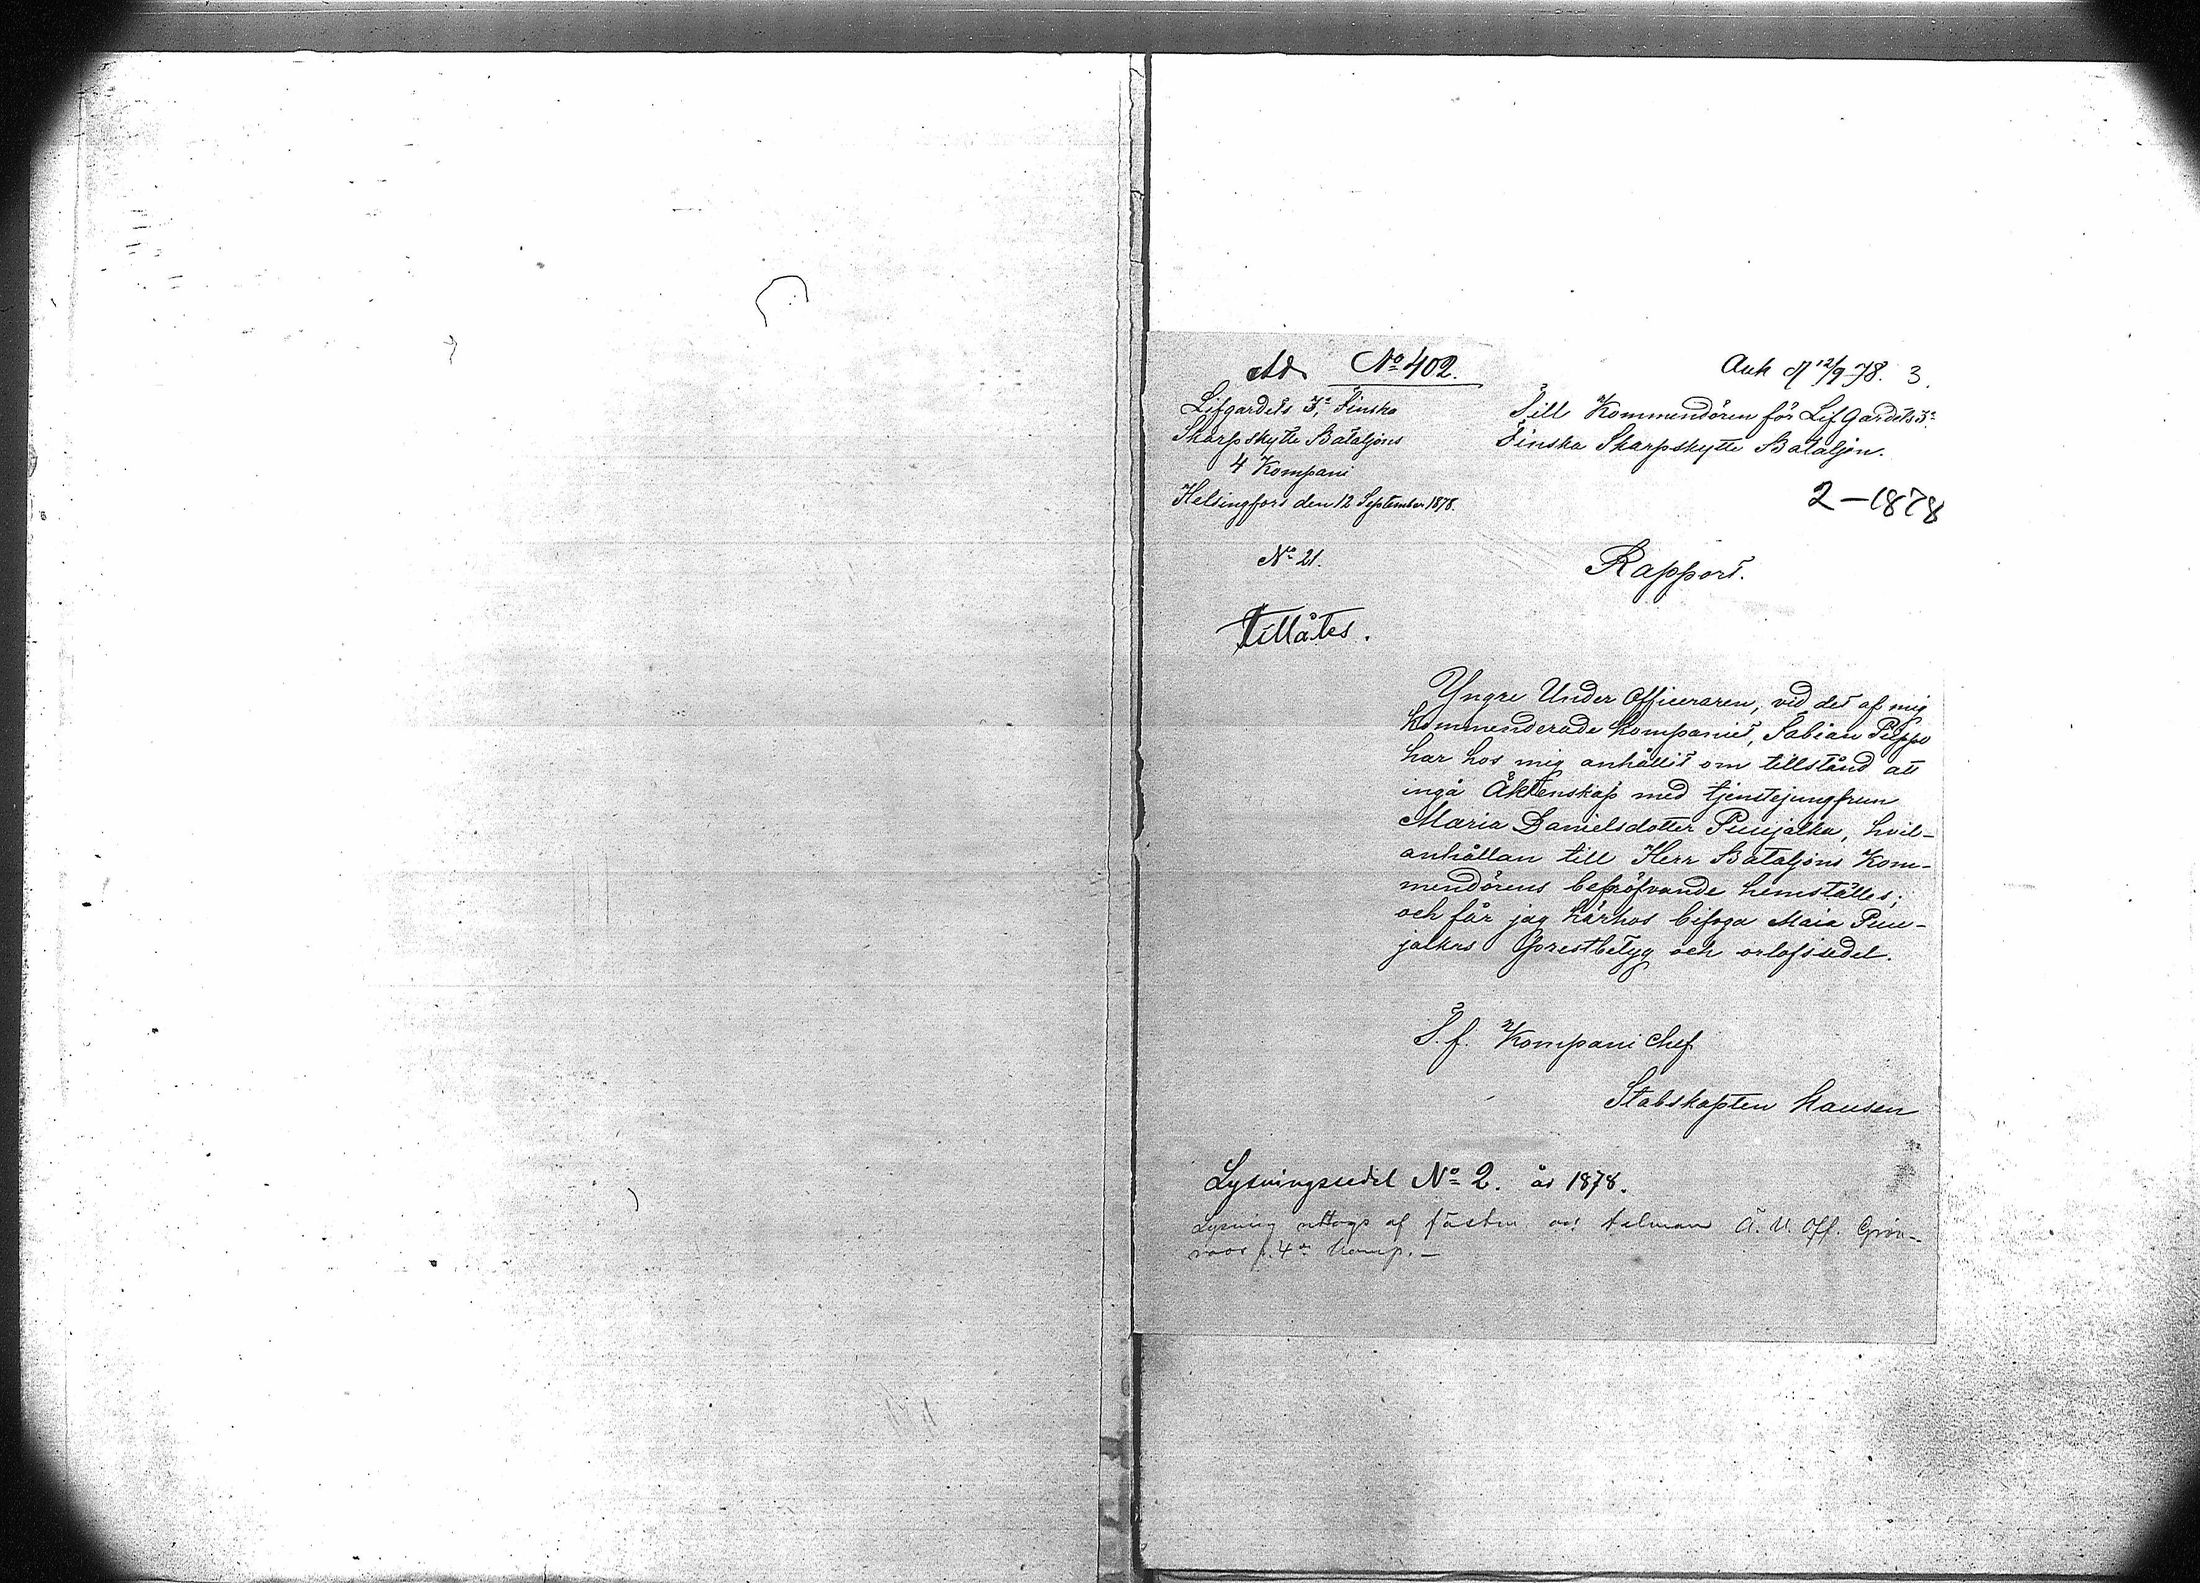 Ad. No 402.
Ank d 12/9 78. 3.
Lifgardets 3e Finska
Skarpskytte Bataljons
4 Kompani
Helsingfors den 12 September 1878.
No 21.
Till Kommendören för Lif Gardets 3e
Finska Skarpskytte Bataljon.
2-1878
Rapport.
Tillåtes.
Yngre Under Officeraren, vid det af mig
kommenderade kompaniet, Fabian Pippo
har hos mig anhållit om tillstånd att
ingå Äktenskap med tjenstejungfrun
Maria Danielsdotter Puujalka, hvil-
anhållan till Herr Bataljons Kom-
mendörens bepröfvande hemställes;
och får jag härhos bifoga Maia Puu-
jalkas prestbetyg och orlofssedel.
T.f. Kompani Chef
Stabskapten Hausen
Lysningssedel No 2. år 1878.
Lysning uttogs af fästm. och talman Ä. U. Off. Grön-
roos f. 4de komp. -